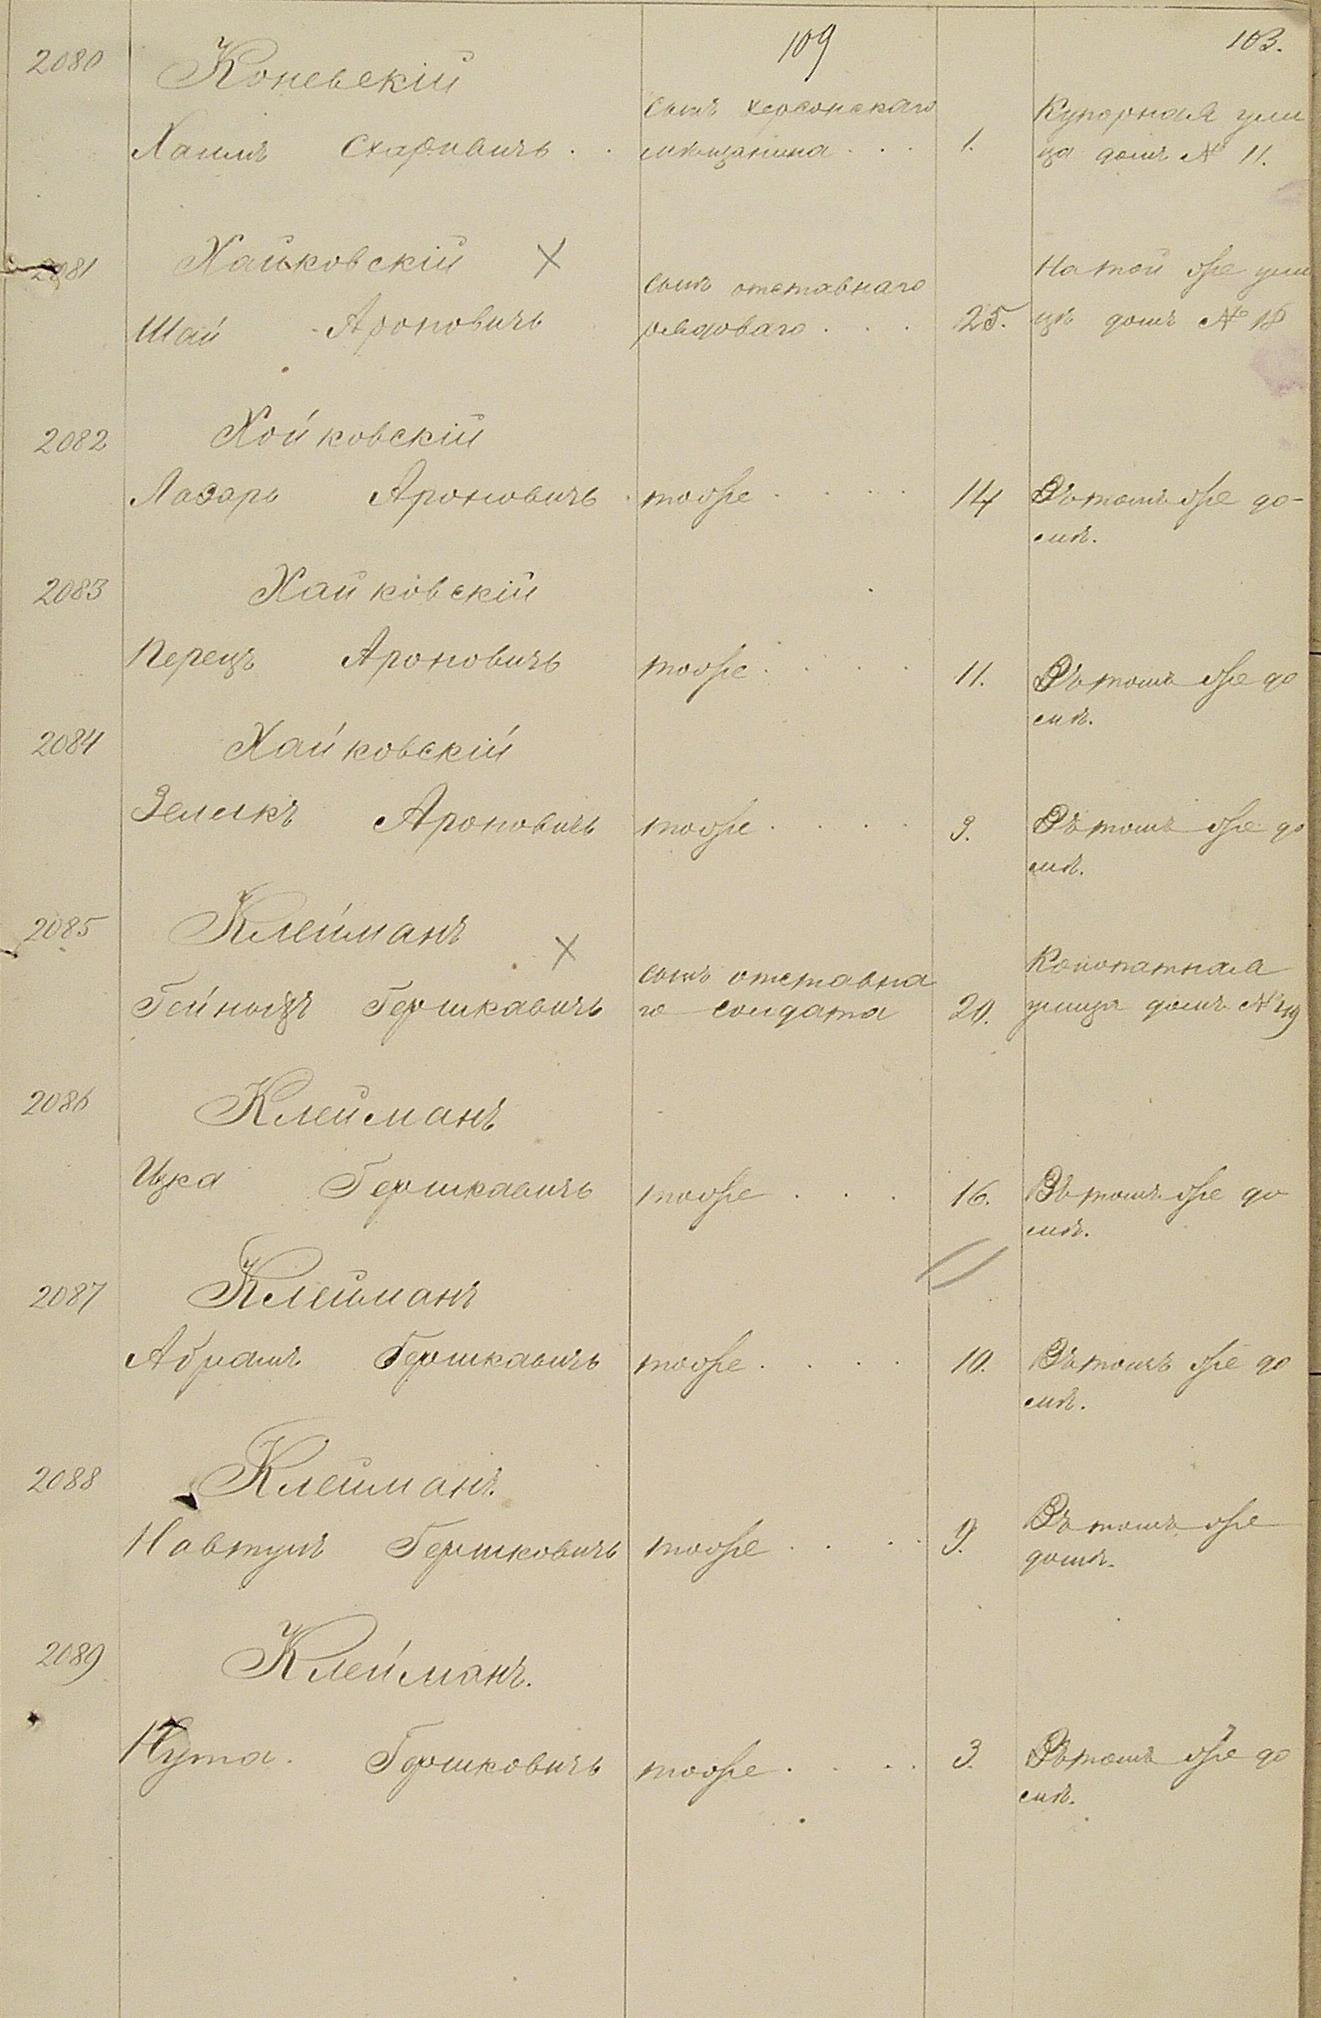 109
103.
2080 Коневскій
Хаимъ Схаровичъ . . сынъ херсонскаго мѣщанина . . . 1. Купорная ули
ца домъ № 11.
2081 Хайковскій X
Шай Ароновичъ сынъ отставнаго рядоваго . . . 25. На той же ули
цѣ домъ № 18
2082 Хойковскій
Лазарь Ароновичъ . тоже . . . . 14 Въ томъ же до-
мѣ.
2083 Хайковскій
Перецъ Ароновичъ тоже . . . . 11. Въ томъ же до
мѣ.
2084 Хайковскій
Зеликъ Ароновичъ тоже . . . . 9. Въ томъ же до
мѣ.
2085 Клейманъ X
Гершкавичъ сынъ отставна
го солдата 20. Конопатная
улица домъ №
2086 Клейманъ
Ицка Гершкавичъ тоже . . . 16. Въ томъ же до
мѣ.
2087 Клейманъ
Абрамъ Гершкавичъ тоже . . . . 10. Въ томъ же до
мѣ.
2088 Клейманъ.
Навтулъ Гершковичъ тоже . . . . 9. Въ томъ же
домѣ.
2089 Клейманъ.
Нута. Гершковичъ тоже . . . . 3. Въ томъ же до
мѣ.